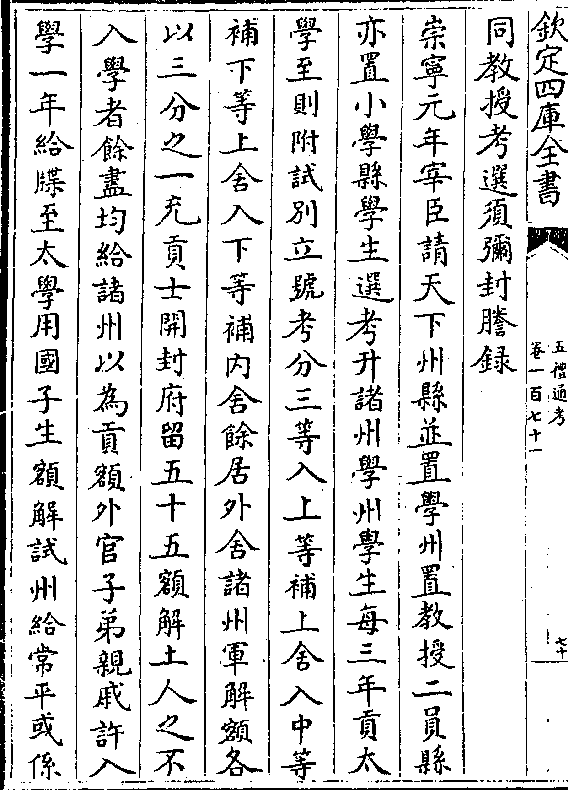 欽定四庫全書
五禮通考
卷一百七十一
七十
同教授考選須彌封謄録
崇寧元年宰臣請天下州縣並置學州置教授二員縣
亦置小學縣學生選考升諸州學州學生每三年貢太
學至則附試別立號考分三等入上等補上舍入中等
補下等上舍入下等補内舍餘居外舍諸州軍解額各
以三分之一充貢士開封府留五十五額解土人之不
入學者餘盡均給諸州以為貢額外官子弟親戚許入
學一年給牒至太學用國子生額解試州給常平或係